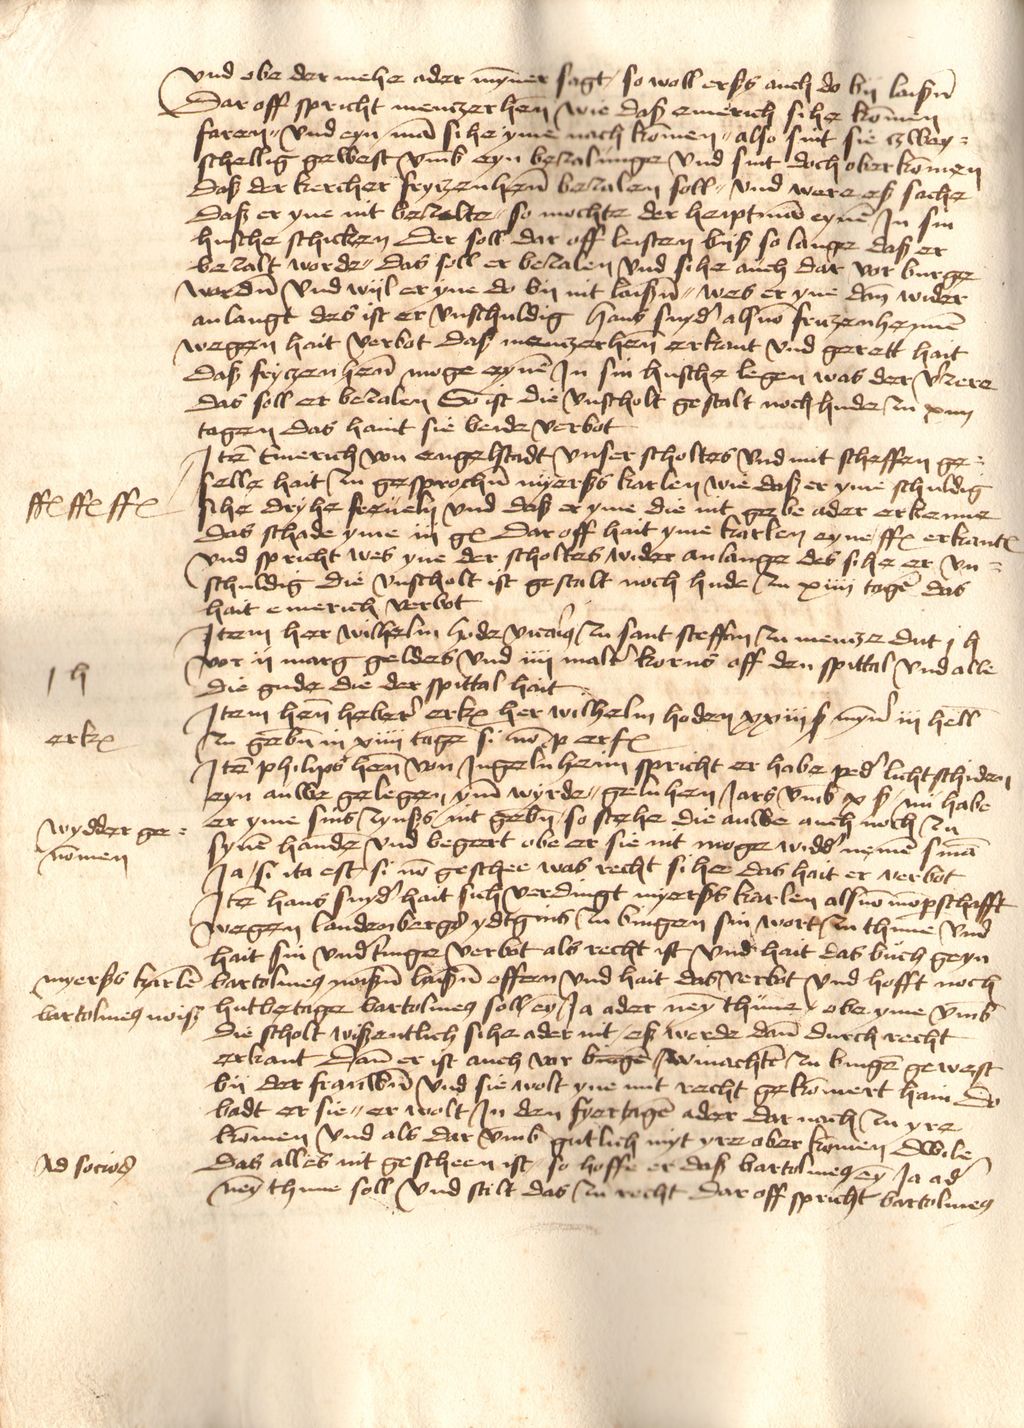 vnd obe der mehe ader myner sagt / so woll erßs auch do by laißen
Dar off spricht mentzerhen wie daß emerich sihe komen
faren // vnd eyn man sihe yme nach komen // also sint sie zwey=
schellig gewest vmb eyn bezalunge vnd sint doch oberkomen
daß der kercher fritzenhen bezalen soll // vnd were eß sache
daß er yne nit bezalte // so mochte der heiptman eyne in sin
husche schicken der soll dar off leisten biß so lange daß er
bezalt worde // das soll er bezalen vnd sihe auch dar vor burge
worden vnd wijl er yne do by nit laißen // wes er yne dan wider
anlangt des ist er vnschuldig hans snyder als von fritzenhenne
wegen hait verbot daß mentzerhen erkant vnd gerett hait
daß fritzenhen moge eynen in sin husche legen was der verzere
das soll er bezalen So ist die vnscholt gestalt noch hude zu xiiij
tagen das haint sie beide verbot
Item Emerich von engelstadt vnser scholtes vnd mit scheffen ge=
selle hait zu gesprochen myerßs karlen wie daß er yme schuldig
ffl ffl ffl
sihe dryhe freueln vnd daß er yme die nit gebe ader erkenne
das schade yme iij gl Dar off hait yme karlen eyne ffl erkant
vnd spricht wes yne der scholtes wider anlange des sihe er vn=
schuldig die vnscholt ist gestalt noch hude zu xiiij tagen das
hait emerich verbot
Item her wilhelm hode vicarius zu sant steffan zu mentze dut j h
j h
vor ij marg geldes vnd iiij malter korns off den spittal vnd alle
die gude die der spittal hait
Item hen heber erkl her wilhelm hoden xxiij ß myner iij hell
erkl
zu geben in xiiij tage si non p erfl
Item philips hen von Ingelnheim spricht er habe peder lichtschiden
eyn auwe gelegen ym wyrde // geluhen jars vmb x ß / nu habe
wydder ge=
er yme sins zynßs nit geben / so stehe die auwe auch noch zu
nomen
synen handen vnd begert obe er sie nit moge widder nemen sententia
Ja / si ita est / si non geschee was recht sihe das hait er verbot
Item hans snyder hait sich verdingt myerßs karlen als von mompschafft
wegen landenbergs zu bingen sin wort zu thune vnd
hait sin vndtinge verbot als recht ist vnd hait das buch geyn
myerßs karlen
bartolmeus noißen laißen offen vnd hait das verbot vnd hofft noch
bartolmeus noiß
hutbetage bartolmeus soll eyn Ja ader ney thune / obe yme vmb
die scholt wißentlich sihe ader nit / eß werde dan durch recht
erkant Dan er ist auch vor machter zu bingen gewest
by der frauwen vnd sie wolt yne mit recht gekomert hain do
badt er sie // er wolt in den fyertagen ader dar nach zu yre
komen vnd als dar vmb gutlich myt yre ober komen Dwile
ad socios
das alles nit gescheen ist / so hoffe er daß bartolmeus eyn Ja ader
ney thune soll vnd stilt das zu recht dar off spricht bartolmeus